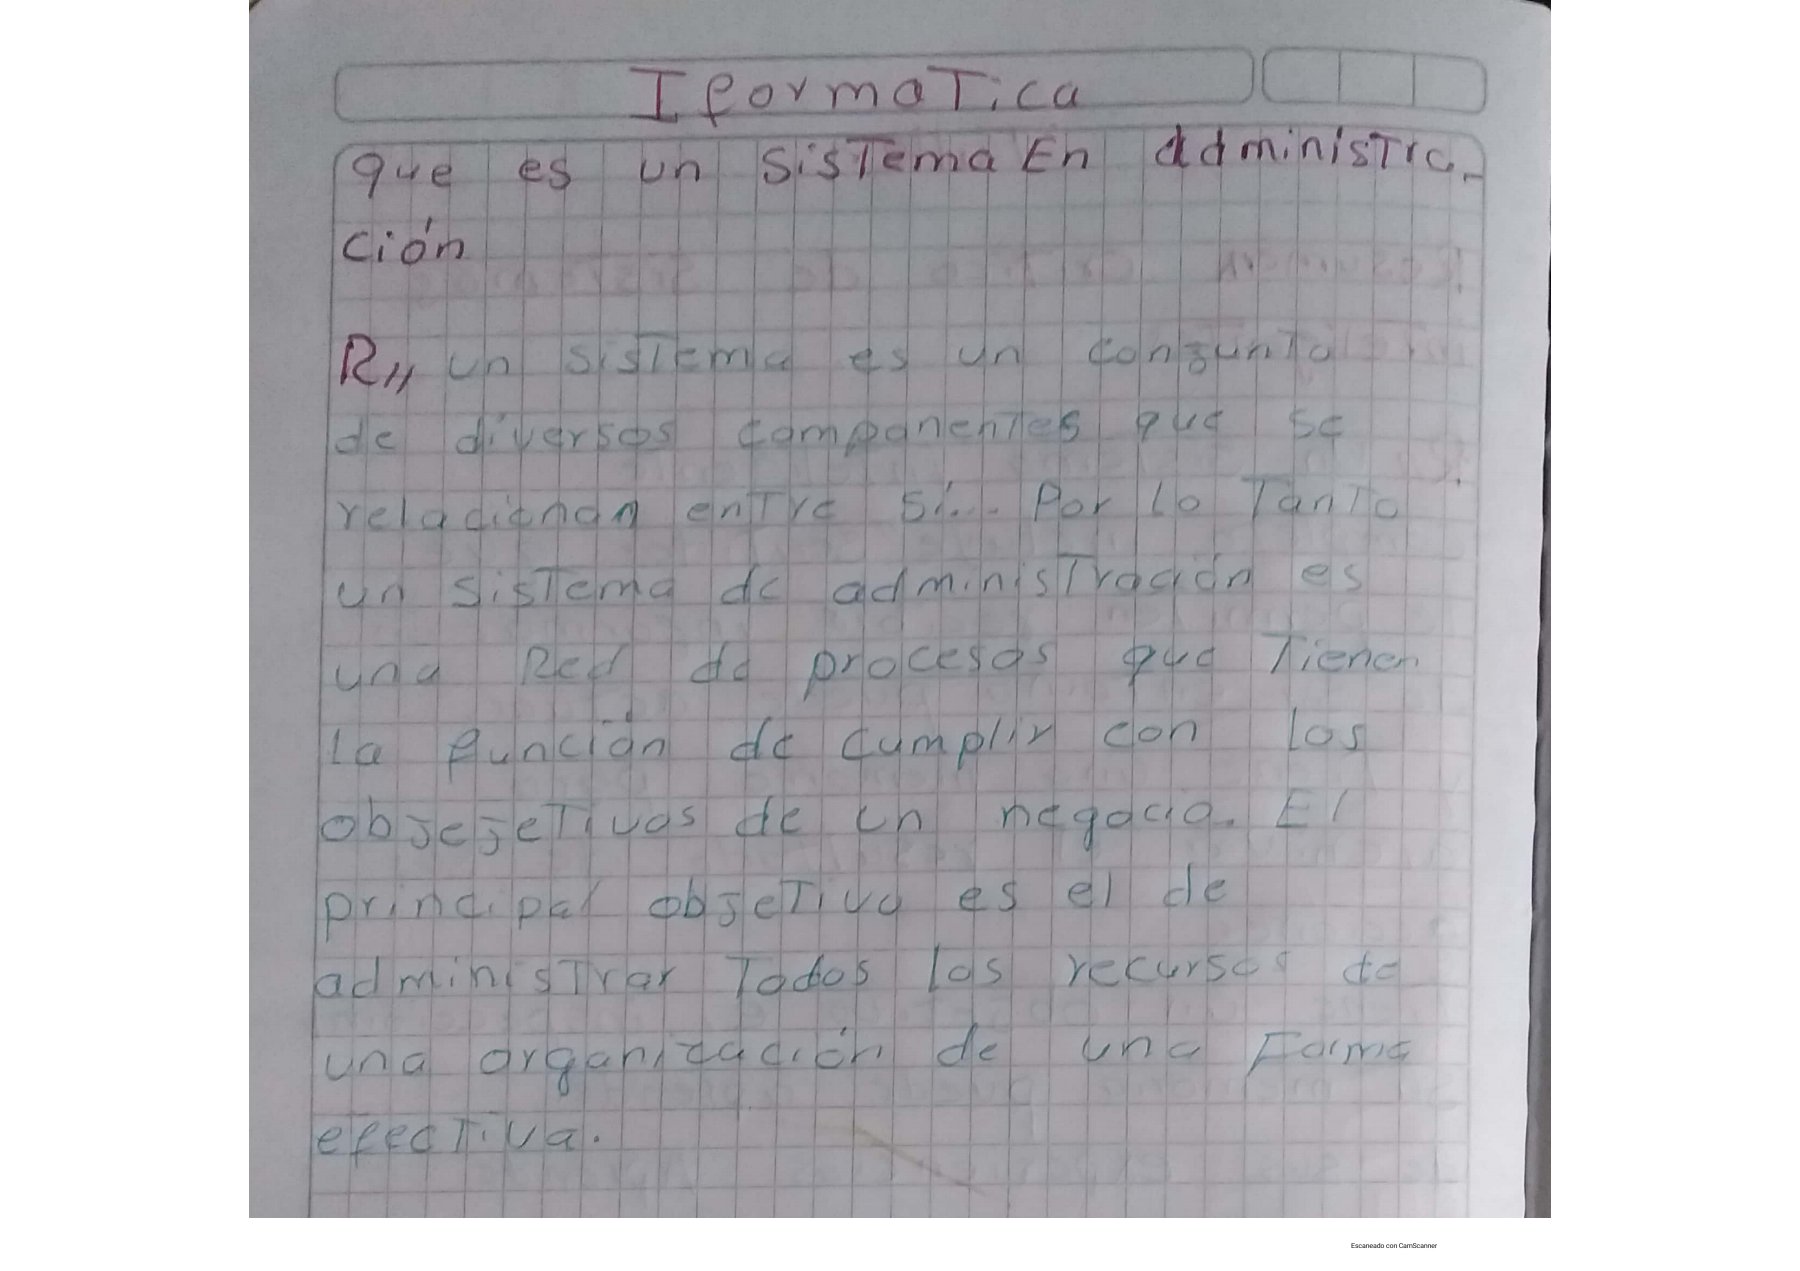 Iformatica
que es un sistema En administra-
ción
R// un sistema es un conjunto
de diversos componentes que se
relacionan entre sí... Por lo Tanto
un sistema de administración es
una Red de procesos que Tienen
la función de cumplir con los
objejetivos de un negocio. El
principal objetivo es el de
administrar Todos los recursos de
una organización de una Forma
efectiva.
Escaneado con CamScanner